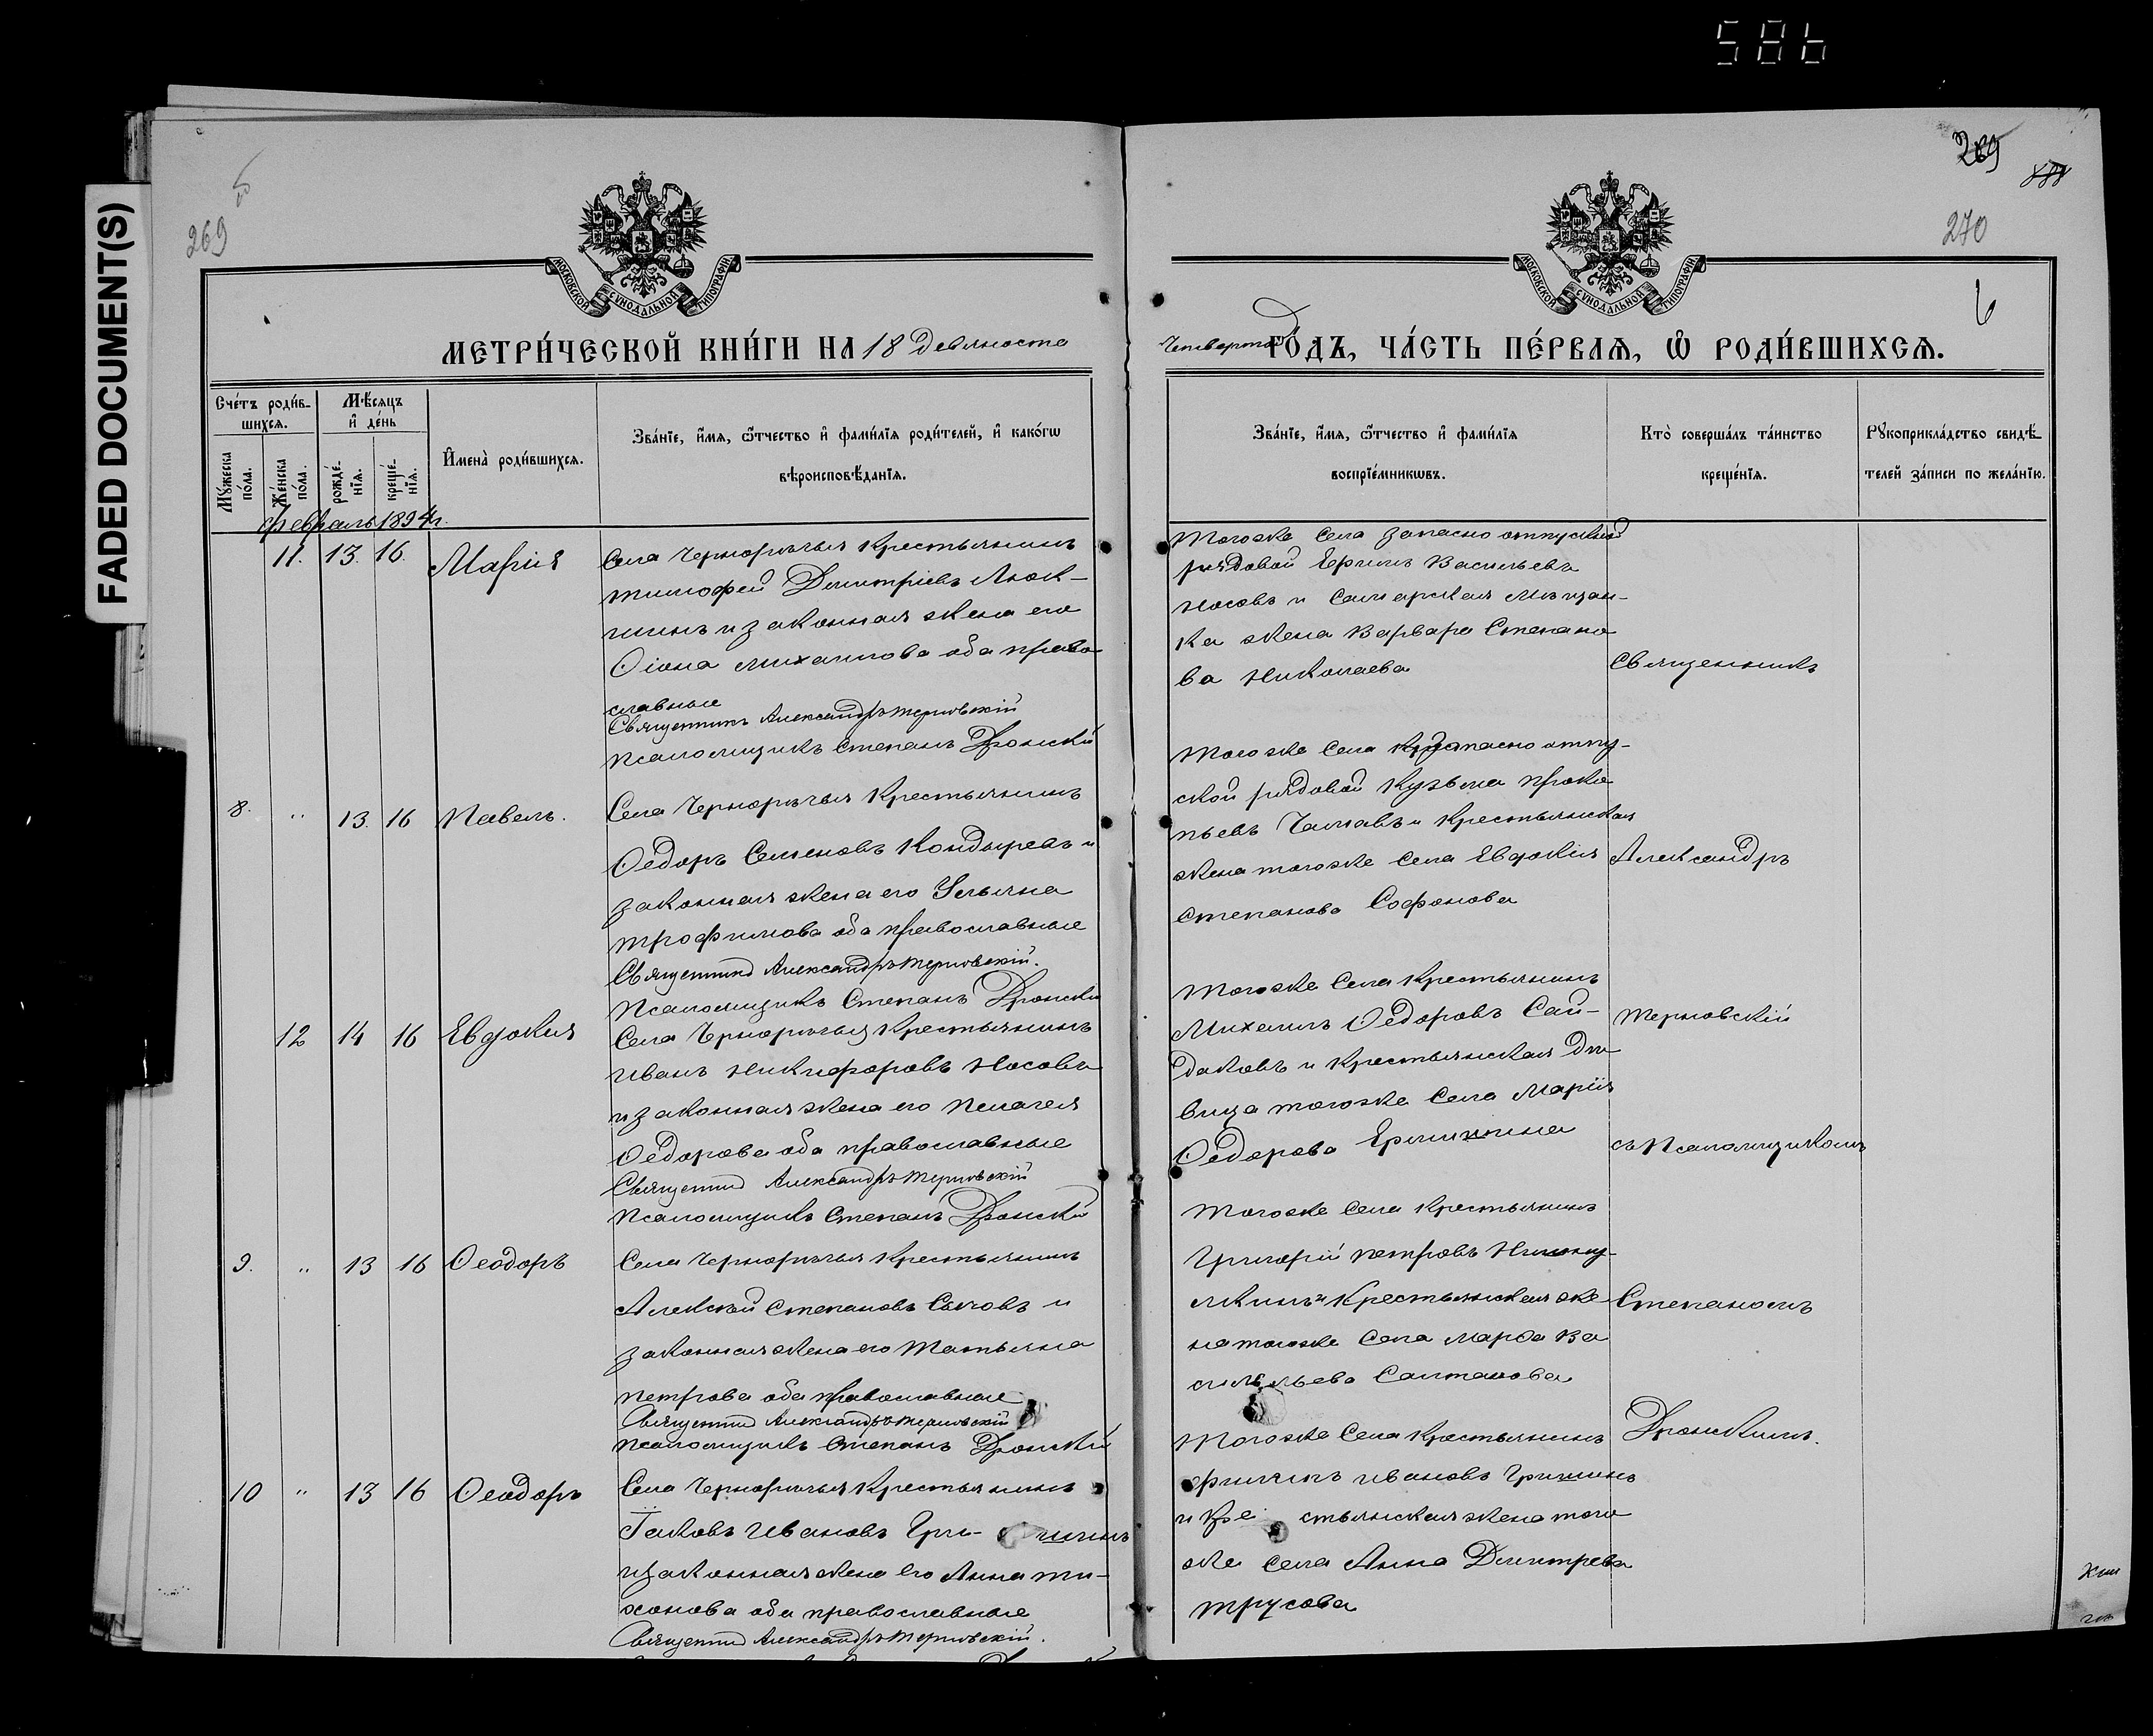 586
FADED DOCUMENT(S)
269
269
270
6
МОСКОВСКОЙ СѴНОДАЛЬНОЙ ТИПОГРАФІИ
МОСКОВСКОЙ СѴНОДАЛЬНОЙ ТИПОГРАФІИ
МЕТРИ́ЧЕСКОЙ КНИ́ГИ НА 18 девяносто
четвертый ГО́ДЪ, ЧА́СТЬ ПЕ́РВАѦ, Ѡ РОДИ́ВШИХСѦ.
Сче́тъ роди́в-
шихсѧ.
Мꙋ́жеска по́ла.
Же́нска по́ла.
Мѣ́сѧцъ
и҆ де́нь
рожде́-нїѧ.
креще́-нїѧ.
И҆мена̀ роди́вшихсѧ.
Зва́нїе, и҆́мѧ, ѻ҆́тчество и҆ фами́лїѧ роди́телей, и҆ како́гѡ
вѣроисповѣ́данїѧ.
Зва́нїе, и҆́мѧ, ѻ҆́тчество и҆ фами́лїѧ
воспрїе́мникѡвъ.
Кто̀ соверша́лъ та́инство
креще́нїѧ.
Рꙋкоприкла́дство свидѣ́-
телей за́писи по жела́нїю.
февраль 1894 г.
11. 13. 16. Марія
Села Чернорѣчья Крестьянинъ
Тимофей Димитріевъ Люк-
шинъ и законная жена его
Ѳіона Михаилова оба право
славные
Священникъ Александръ Терновскій
Псаломщикъ Степанъ Дронскій
Тогоже Села запасно отпускной
рядовой Ефимъ Васильевъ
Носовъ и Самарская Мѣщан-
ка жена Варвара Степано
ва Николаева
Священникъ
8. " 13. 16 Павелъ.
Села Чернорѣчья Крестьянинъ
Ѳедоръ Семеновъ Кондыревъ и
законная жена его Ульяна
Трофимова оба православные
Священникъ Александръ Терновскій.
Псаломщикъ Степанъ Дронскій
Тогоже Села запасно отпу-
ской рядовой Кузьма Проко
пьевъ Чамавъ и Крестьянская
жена тогоже Села Евдокія
Степанова Софонова
Александръ
12 14 16 Евдокия
Села Чернорѣчья Крестьянинъ
Иванъ Никифоровъ Носовъ
и законная жена его Пелагея
Ѳедорова оба православные
Священникъ Александръ Терновскій
Псаломщикъ Степанъ Дронскій
Тогоже Села Крестьянинъ
Михаилъ Ѳедоровъ Сай-
даковъ и Крестьянская дѣ
вица тогоже Села Марія
Ѳедорова
Терновскій
съ Псаломщикомъ
9. " 13 16 Ѳеодоръ
Села Чернорѣчья Крестьянинъ
Алексѣй Степановъ Сычовъ и
законная жена его Татьяна
Петрова оба православные
Священникъ Александръ Терновскій
Псаломщикъ Степанъ Дронскій
Тогоже Села Крестьянинъ
Григорій Петровъ
и Крестьянская же
на тогоже Села Марѳа Ва
сильева Салтанова
Степаномъ
10 " 13 16 Ѳеодоръ
Села Чернорѣчья Крестьянинъ
Іаковъ Ивановъ Гри- шинъ
и законная жена его Анна Ти-
хонова оба православные
Священникъ Александръ Терновскій.
Тогоже Села Крестьянинъ
Филипъ Ивановъ Гришинъ
и Кре стьянская жена того
же Села Анна Дмитрева
Трусова
Дронскимъ.